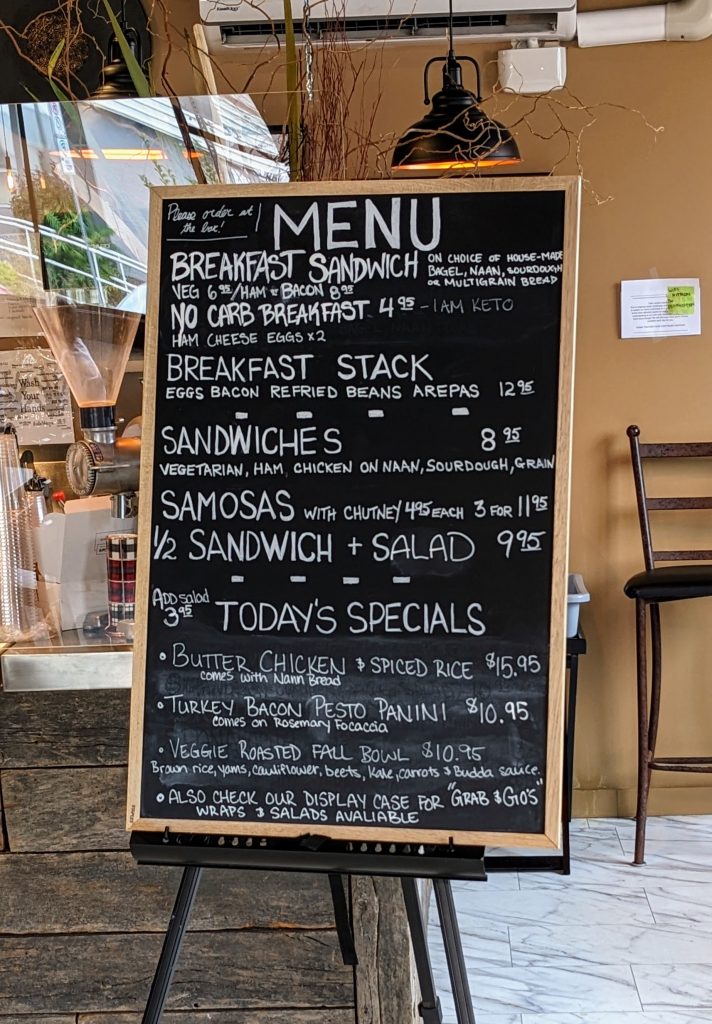 Please order at
the bar!
MENU
BREAKFAST SANDWICH
ON CHOICE OF HOUSE-MADE
BAGEL, NAAN, SOURDOUGH
OR MULTIGRAIN BREAD
VEG 6.95/HAM & BACON 8.95
NO CARB BREAKFAST 4.95 - I AM KETO
HAM CHEESE EGGS x2
BREAKFAST STACK
EGGS BACON REFRIED BEANS AREPAS 12.95
SANDWICHES 8.95
VEGETARIAN, HAM, CHICKEN ON NAAN, SOURDOUGH, GRAIN
SAMOSAS WITH CHUTNEY 4.95 EACH 3 FOR 11.95
1/2 SANDWICH + SALAD 9.95
ADD salad
3.95
TODAY'S SPECIALS
• BUTTER CHICKEN & SPICED RICE $15.95
comes with Nann Bread
• TURKEY BACON PESTO PANINI $10.95
comes on Rosemary Focaccia
• VEGGIE ROASTED FALL BOWL $10.95
Brown rice, yams, cauliflower, beets, Kale, carrots & Budda sauce.
• ALSO CHECK OUR DISPLAY CASE FOR "GRAB & GO'S"
WRAPS & SALADS AVALIABLE
Wash
Your
Hands